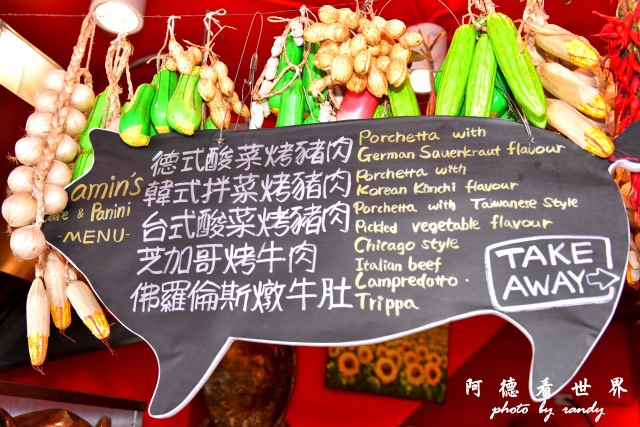 amin's
Cafe & Panini
-MENU-
德式酸菜烤豬肉
韓式拌菜烤豬肉
台式酸菜烤豬肉
芝加哥烤牛肉
佛羅倫斯燉牛肚
Porchetta with
German Sauerkraut flavour
Porchetta with
Korean Kimchi flavour
Porchetta with Taiwanese Style
Pickled vegetable flavour
Chicago style
Italian beef
Lampredotto.
Trippa
TAKE
AWAY
阿德看世界
photo by randy